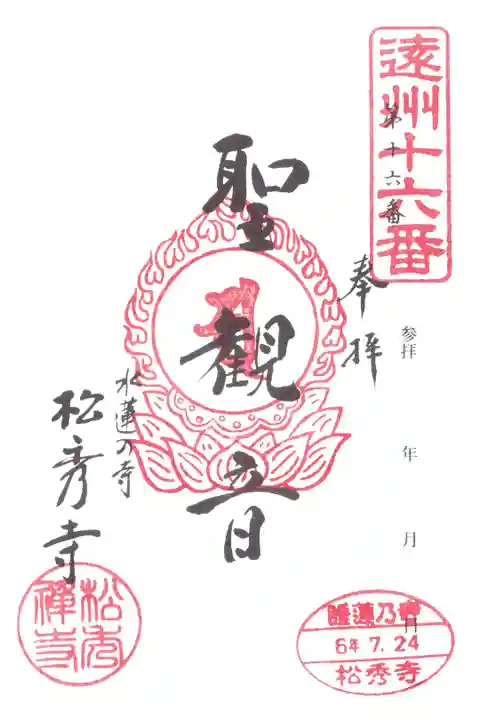 遠州十六番
第十六番
奉拝
参拝 年 月 日
聖観音
水蓮の寺
松秀寺
松秀禅寺
睡蓮乃
6年 7.24
松秀寺